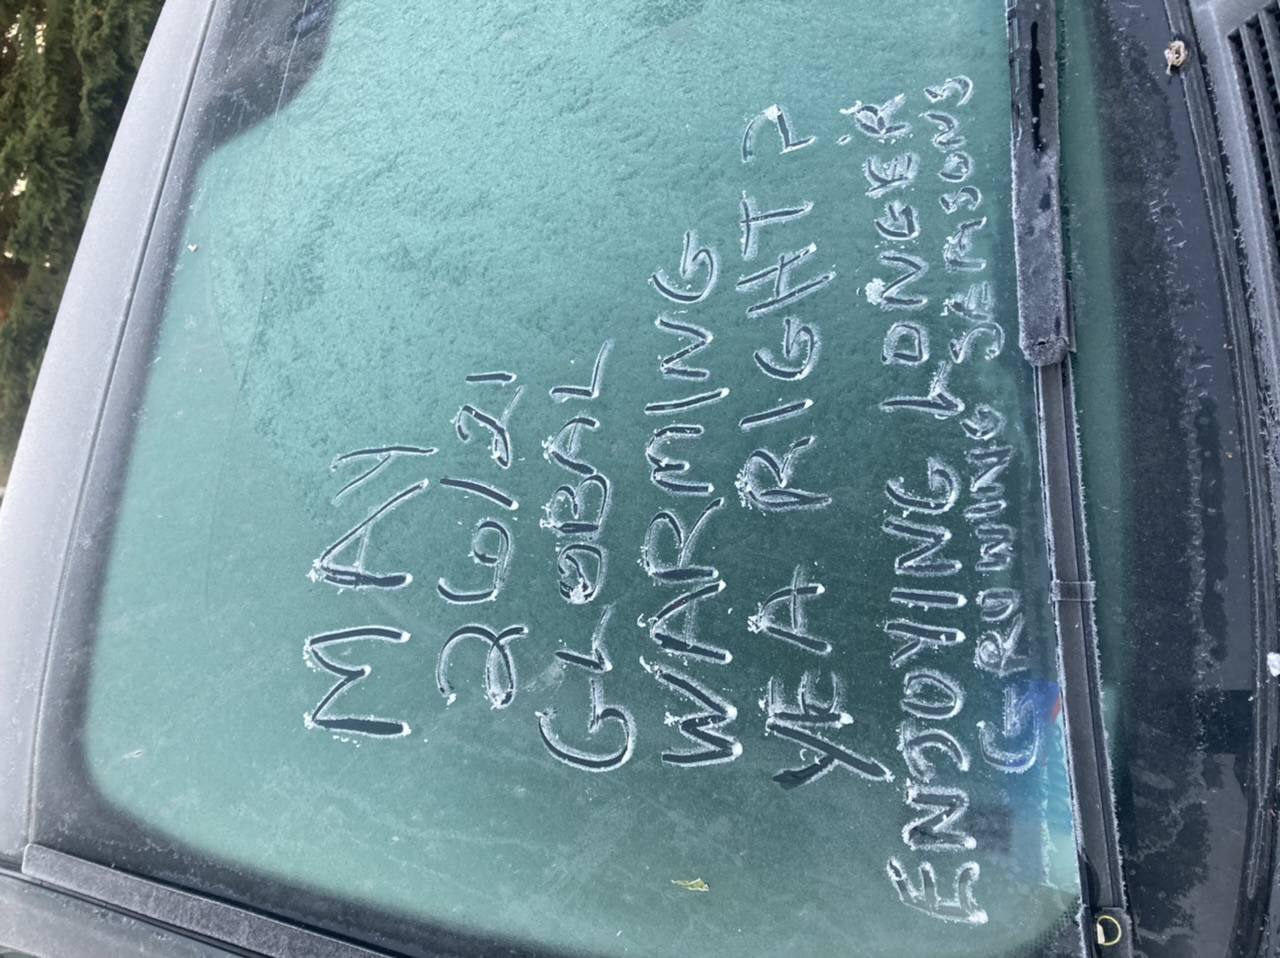 MAY
26/21
GLOBAL
WARMING
YEA RIGHT?
ENJOYING LONGER
GROWING SEASONS